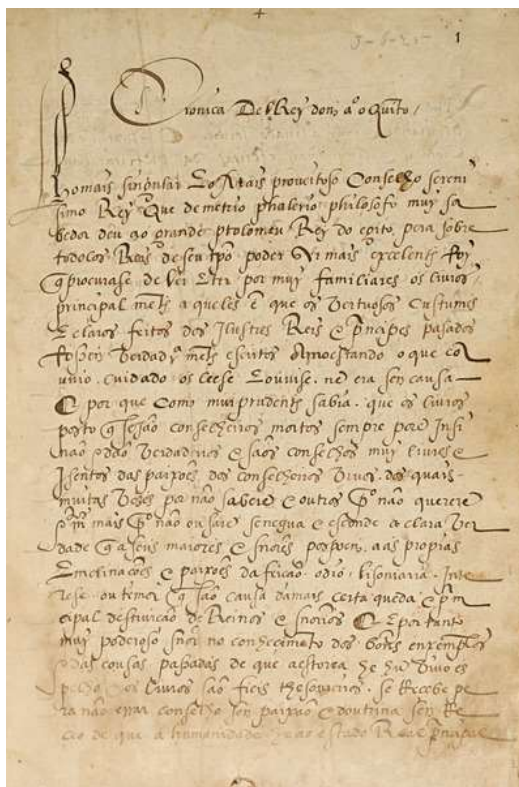 1
Cronica Del Rey dom aº o Quinto
ho mais singular Eo Mais proveitoso Conselho sereni
simo Rey Que demetrio phalerio philosofo muy sa
bedor deu ao grande ptolomeu Rey do egito, pera sobre
todolos Reis de seu tpõ poder vi mais excelente foy
q procurase de Ver Eter por muy familiares os livros
principal mente aqueles ẽ que os Vertuosos Custumes
E claros feitos dos Ilustres Reis E prĩncipes pasados
Verdadrª mente escritos Amoestando o que cõ
cuidado os leese Eouvise. nẽ era sen causa
E por que Como mui prudente sabia. que os livros
posto q sejão conselheiros mortos sempre
não Edão Verdadeiros E sãos conselhos muy livres E
Isentos das paixoẽs dos conselheiros Vivos. dos quais
muitas Vezes por não saberẽ E outros não quererẽ
mais não ousarẽ se negua E esconde a clara Ver
dade q aseus maiores E snõres pospoem, aas proprias
Emclinaçoẽs E paixoẽs da feição. odio. lisomiaria. Inte
rese. ou temor q são causa damais certa queda E prĩn
cipal destruição de Reinos E snorios E portanto
muy poderoso snõr no conhecimẽto dos bõos enxemplos
E das cousas pasadas de que aestorea he hũ Vivo es
pelho Eos livros são fieis thesoureiros. se Recebe pe
ra não errar conselho sen paixão E doutrina sen Re
ceo de que a humanidade Eo estado Real prĩncipal